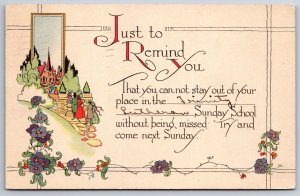 Just to
Remind
You
That you can not stay out of your
place in the Trinity
Lutheran Sunday School
without being missed Try and
come next Sunday